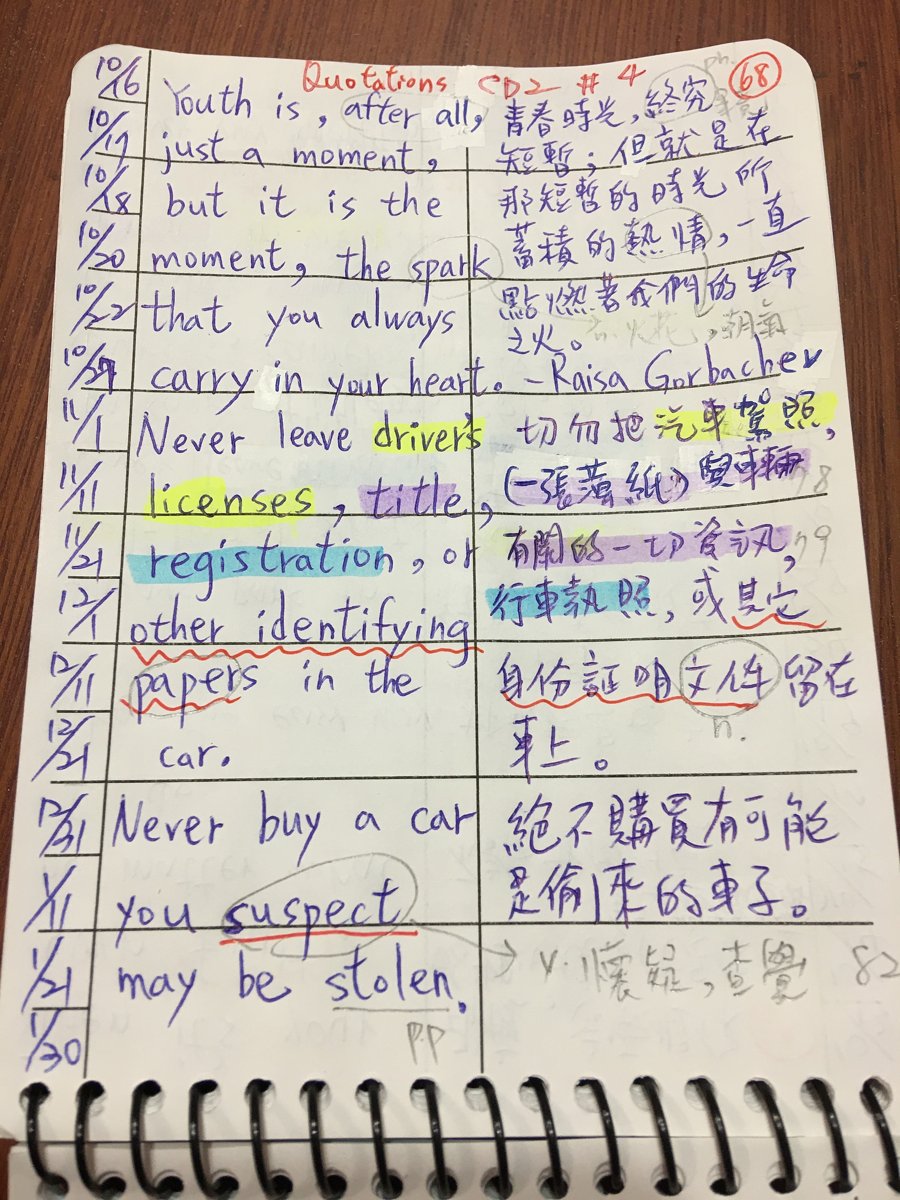 Quotations CD2 # 4
68
ph.
10/16
Youth is, after all,
青春時光,終究
10/17
just a moment,
短暫;但就是在
10/18
but it is the
那短暫的時光所
10/20
moment, the spark
蓄積的熱情,一直
10/22
that you always
點燃著我們的生命
之火。
火花,朝氣
10/27
carry in your heart.
-Raisa Gorbachev
11/1
Never leave driver's
切勿把汽車駕照,
11/11
licenses, title,
(一張薄紙)與車輛
78
11/21
registration, or
有關的一切資訊,
79
12/1
other identifying
行車執照,或其它
12/11
papers in the
身份証明文件留在
n.
12/21
car.
車上。
12/31
Never buy a car
絕不購買有可能
1/11
you suspect
是偷來的車子。
1/21
may be stolen.
v. 懷疑,查覺
82
1/30
p.p